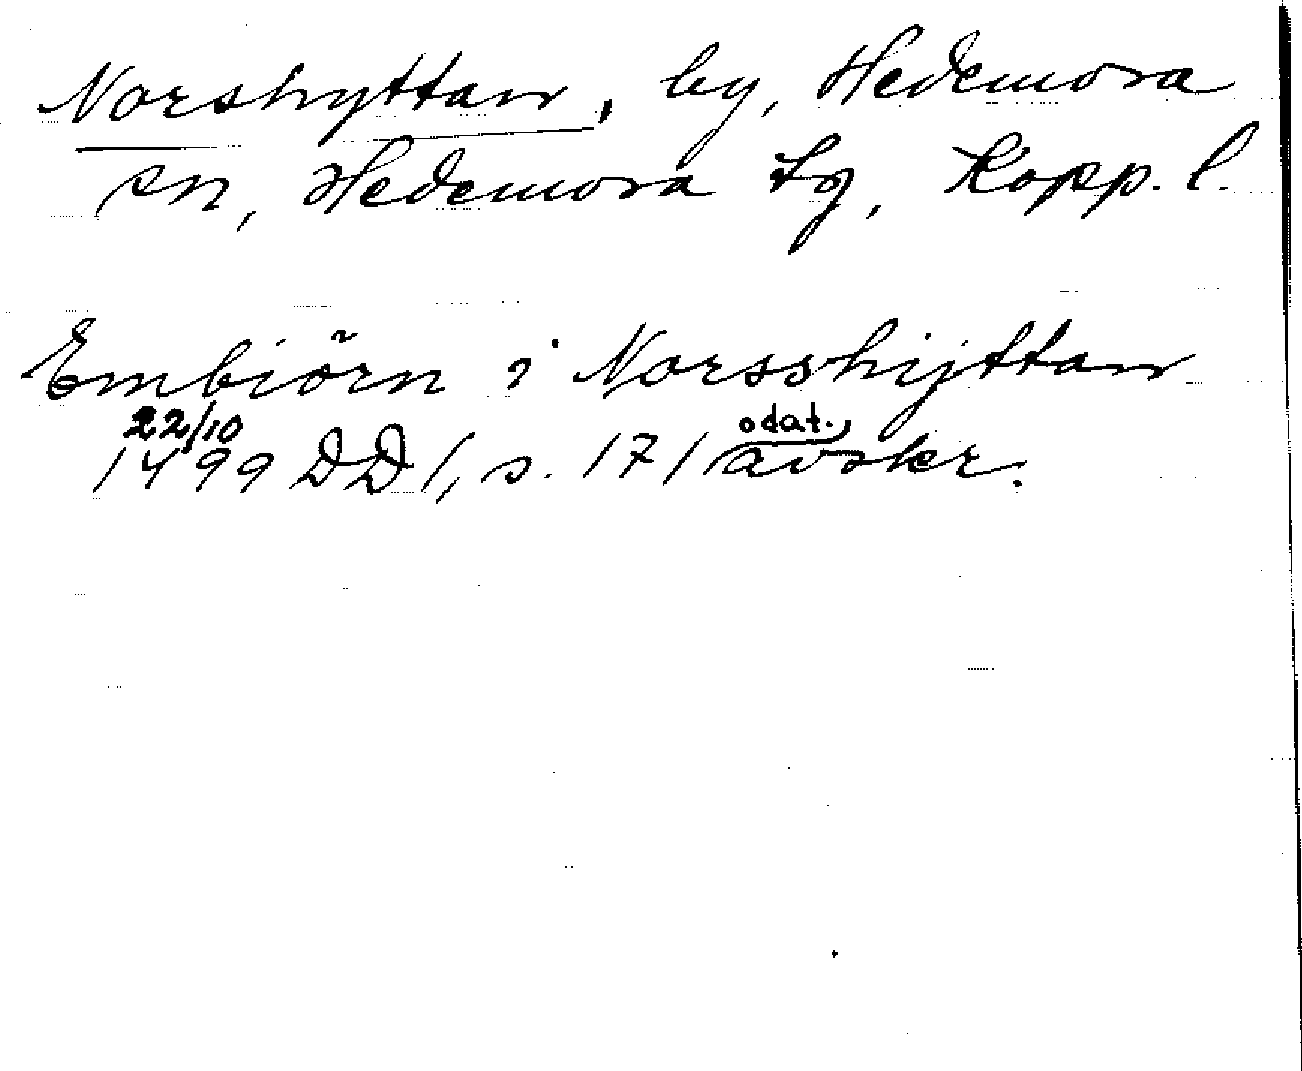 Norshyttan, by, Hedemora
sn, Hedemora tg, Kopp. l.
Embiörn i Norsshijttan
22/10 odat.
1499 DD 1, s. 171 avskr.